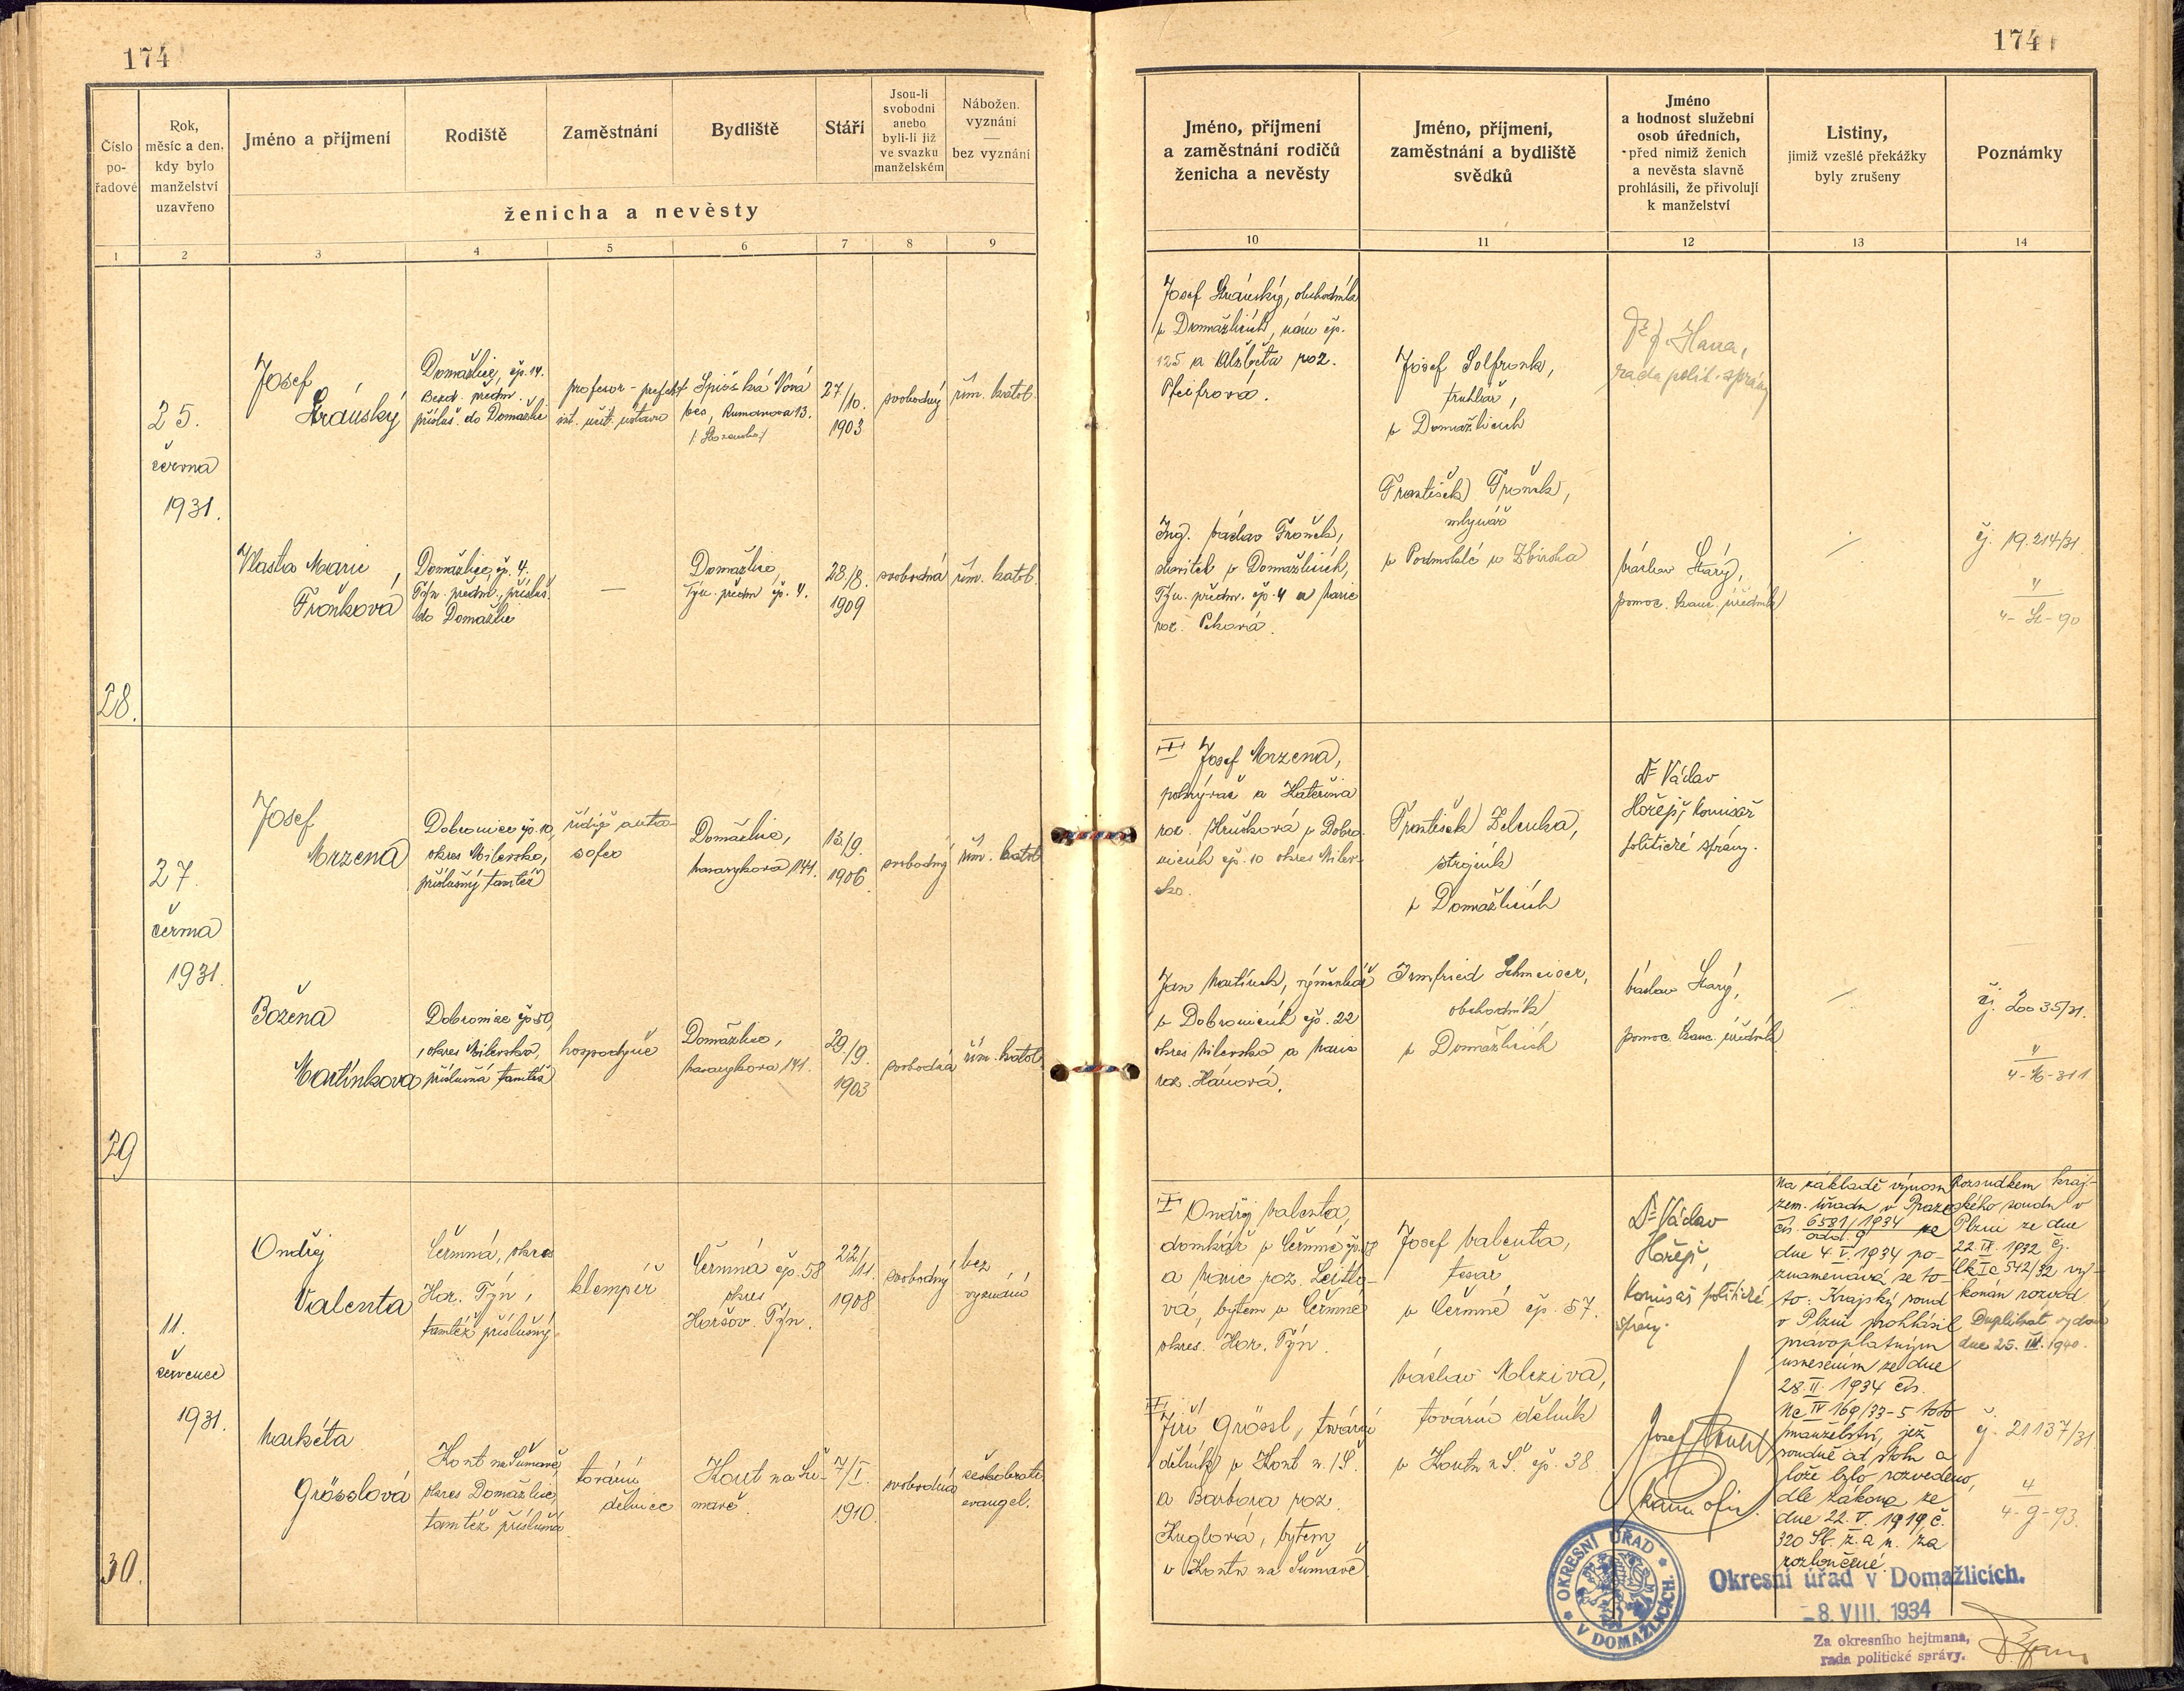 174
174
Číslo
po-
řadové
Rok,
měsíc a den,
kdy bylo
manželství
uzavřeno
Jméno a příjmení
Rodiště
Zaměstnání
Bydliště
Stáří
Jsou-li
svobodni
anebo
byli-li již
ve svazku
manželském
Nábožen.
vyznání
—
bez vyznání
ženicha a nevěsty
1 2 3 4 5 6 7 8 9
Jméno, příjmení
a zaměstnání rodičů
ženicha a nevěsty
Jméno, příjmení,
zaměstnání a bydliště
svědků
Jméno
a hodnost služební
osob úředních,
před nimiž ženich
a nevěsta slavně
prohlásili, že přivolují
k manželství
Listiny,
jimiž vzešlé překážky
byly zrušeny
Poznámky
10 11 12 13 14
28.
25.
června
1931.
Josef
Stránský
Domažlice, čp. 14.
Bezd. předm.
přísluš. do Domažlic
profesor - prefekt
úst. učit. ústavu
Spišská Nová
Ves, Rumanova 13.
/Slovensko/
27/10.
1903
svobodný
řím. katol.
Josef Stránský, obchodník
v Domažlicích, nám čp.
125 a Alžběta roz.
Pfeifrová.
Josef Solfronk,
truhlář,
v Domažlicích
Dr J. Hana,
rada polit. správy
Vlasta Marie
Frončková
Domažlice, čp. 4.
Týn. předm., přísluš.
do Domažlic
—
Domažlice,
Týn. předm čp. 4.
28./8.
1909
svobodná
řím. katol.
Ing. Václav Fronček,
stavitel v Domažlicích,
Týn. předm. čp. 4 a Marie
roz. Peková.
František Froněk,
mlynář
v Podmoklé u Zbiroha
Václav Starý,
pomoc. kanc. úředník
čj. 19.214/31.
4
4-St-90
29
27.
června
1931.
Josef
Mrzena
Dobronice čp. 10,
okres Milevsko,
příslušný tamtéž
řidič auta-
šofer
Domažlice,
Masarykova 141.
13./9.
1906
svobodný
řím. katol.
I Josef Mrzena,
pokrývač a Kateřina
roz. Hrušková v Dobro-
nicích čp. 10 okres Milev-
sko.
František Zelenka,
strojník
v Domažlicích
Dr Václav
Hořejš, komisař
politické správy.
Božena
Martínková
Dobronice čp 50,
okres Milevsko,
příslušná tamtéž
hospodyně
Domažlice,
Masarykova 141.
29./9.
1903
svobodná
řím. katol.
Jan Martínek, výměnkář
v Dobronicích čp. 22
okres Milevsko a Marie
roz. Hánová.
Irmfried Schmeiser,
obchodník
v Domažlicích
Václav Starý,
pomoc. kanc. úředník
čj. 20035/31.
4
4-M-311
30.
11.
července
1931.
Ondřej
Valenta
Čermná, okres
Hor. Týn,
tamtéž příslušný
klempíř
Čermná čp. 58
okres
Horšov. Týn.
22/11.
1908
svobodný
bez
vyznání
I Ondřej Valenta,
domkář v Čermné čp. 58
a Marie roz. Leitlo-
vá, bytem v Čermné
okres. Hor. Týn.
Josef Valenta,
tesař
v Čermné čp. 57.
Dr Václav
Hořejš,
komisař politické
správy.
Markéta
Grösslová
Kout na Šumavě
okres Domažlice,
tamtéž příslušná
tovární
dělnice
Kout na Šu-
mavě
7/I.
1910.
svobodná
českobratr.
evangel.
I
Jiří Grössl, tovární
dělník v Koutě n./Š.
a Barbora roz.
Kuglová, bytem
v Koutu na Šumavě
Václav Mleziva,
tovární dělník
v Koutu n Š. čp. 38
Josef
kanc. ofic.
Na základě výnosu
zem. úřadu v Praze
čís. 6531/1934 ze
odd. 9
dne 4. V. 1934 po-
znamenává se to-
to: Krajský soud
v Plzni prohlásil
právoplatným
usnesením ze dne
28. II. 1934 čís.
Nc IV 169/33-5 toto
manželství, jež
soudně od stolu a
lože bylo rozvedeno,
dle zákona ze
dne 22. V. 1919 č.
320 Sb. z. a n. za
rozloučené.
Rozsudkem kraj-
ského soudu v
Plzni ze dne
22. IX. 1932 čj.
Ck Ia 542/32 vy-
konán rozvod
Duplikát vydán
dne 25. III. 1940.
čj. 21137/31
4
4-g-93.
OKRESNÍ ÚŘAD
V DOMAŽLICÍCH.
Okresní úřad v Domažlicích.
-8. VIII. 1934
Za okresního hejtmana,
rada politické správy.